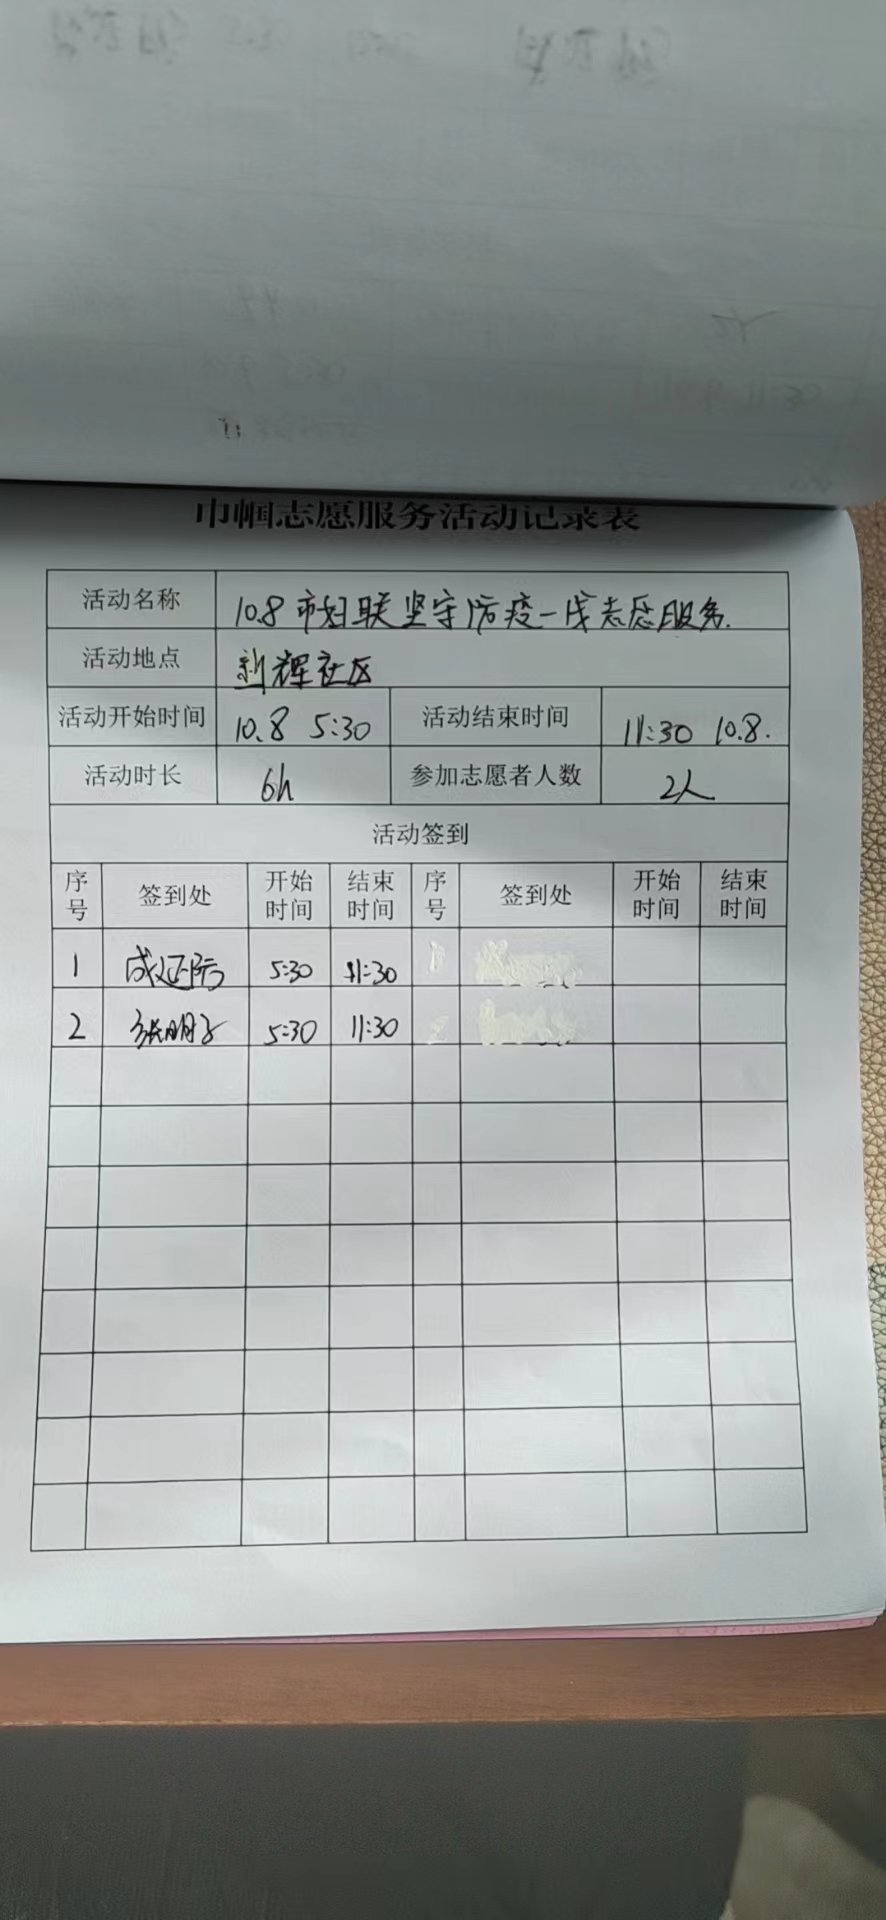 巾帼志愿服务活动记录表
活动名称 10.8 市妇联坚守防疫一线志愿服务.
活动地点 新辉社区
活动开始时间 10.8 5:30 活动结束时间 11:30 10.8.
活动时长 6h 参加志愿者人数 2人
活动签到
序号 签到处 开始时间 结束时间 序号 签到处 开始时间 结束时间
1 5:30 11:30
2 5:30 11:30